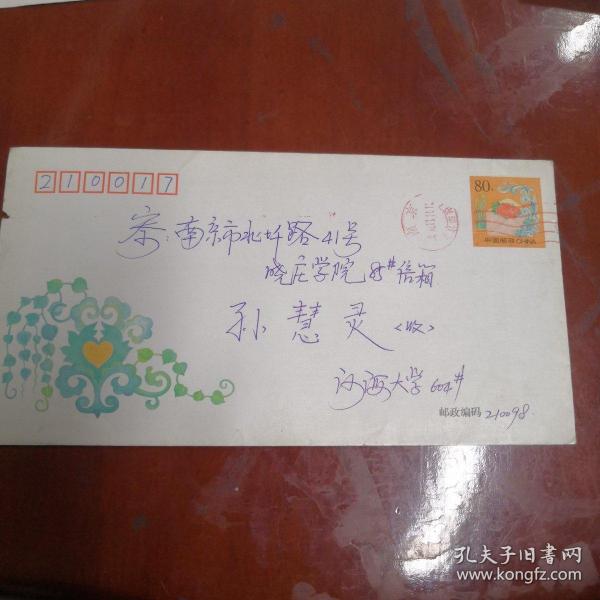 210017
80分
中国邮政 CHINA
寄:南京市北圩路41号
晓庄学院 85#信箱
孙慧灵 <收>
河海大学 604#
邮政编码 210098
孔夫子旧书网
www.kongfz.com